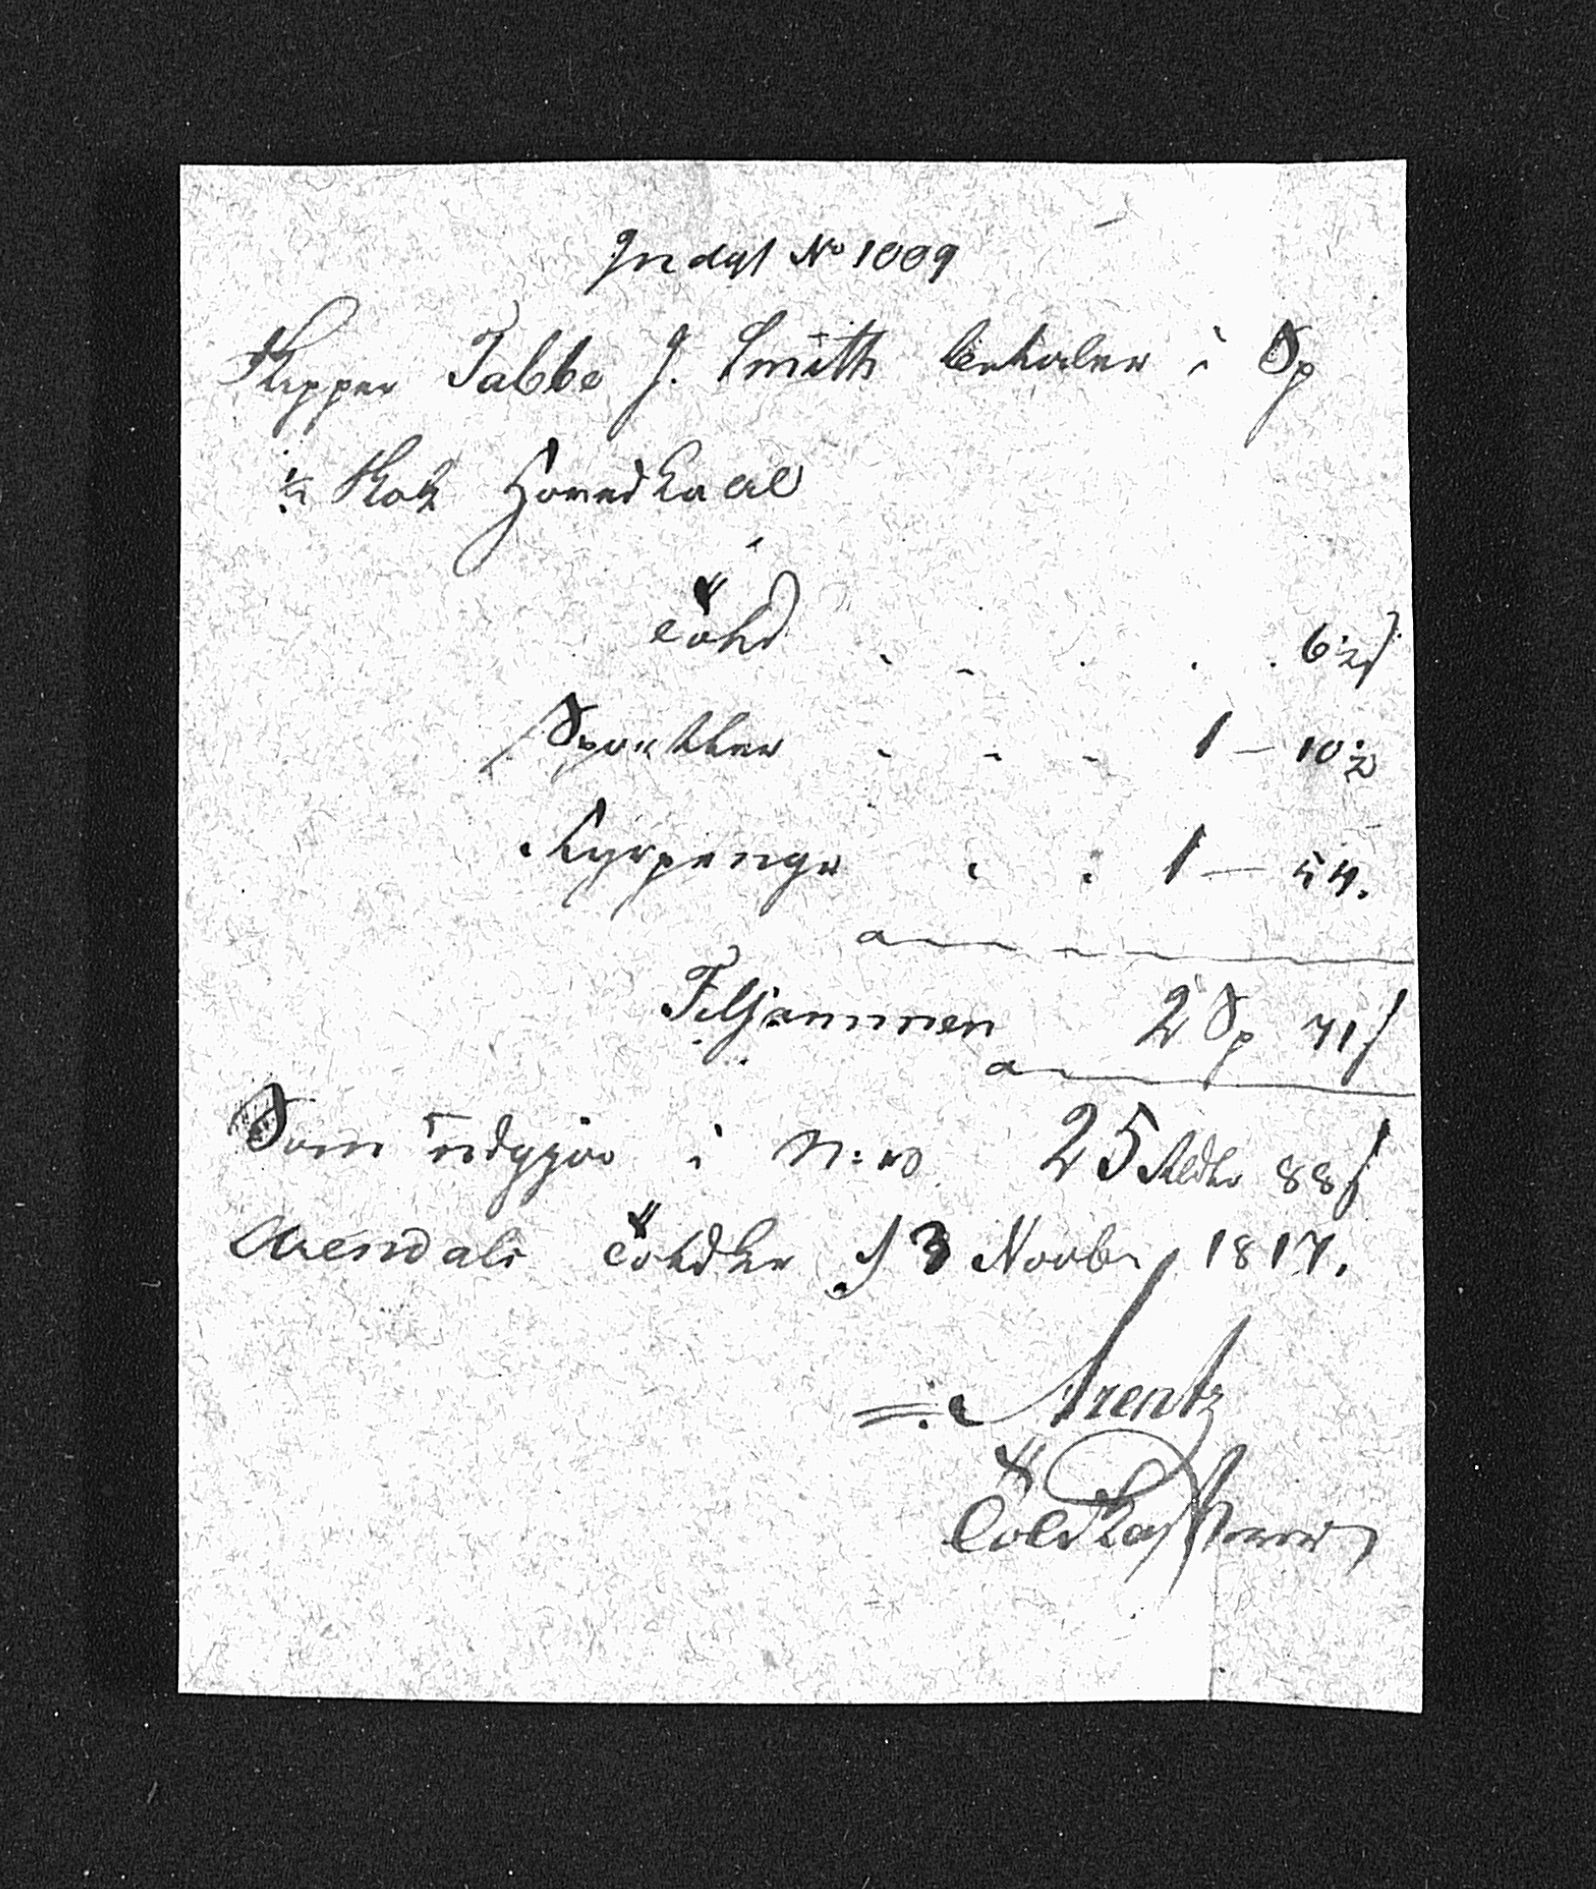 Indgl No 1009
Skipper Tabbe J. Smith betaler i Sp
½ Skok Hovedkaal
Told . . . . . 6½ s
Sportler . . . 1 – 10½
Fyrpenge . . 1 – 54.
Tilsammen 2 Sp 71 s
Som udgjør i N: W 25 Rbdlr 88 s
Arendals Toldkr d 3 Novbr 1817.
Arentz
Toldkasserer